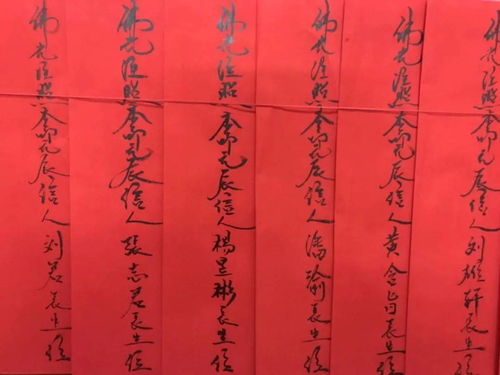 佛光注照本命元辰信人刘雄轩長生位
佛光注照本命元辰信人黄長生位
佛光注照本命元辰信人潘瑜長生位
佛光注照本命元辰信人楊昱彬長生位
佛光注照本命元辰信人張志君長生位
佛光注照本命元辰信人刘君長生位